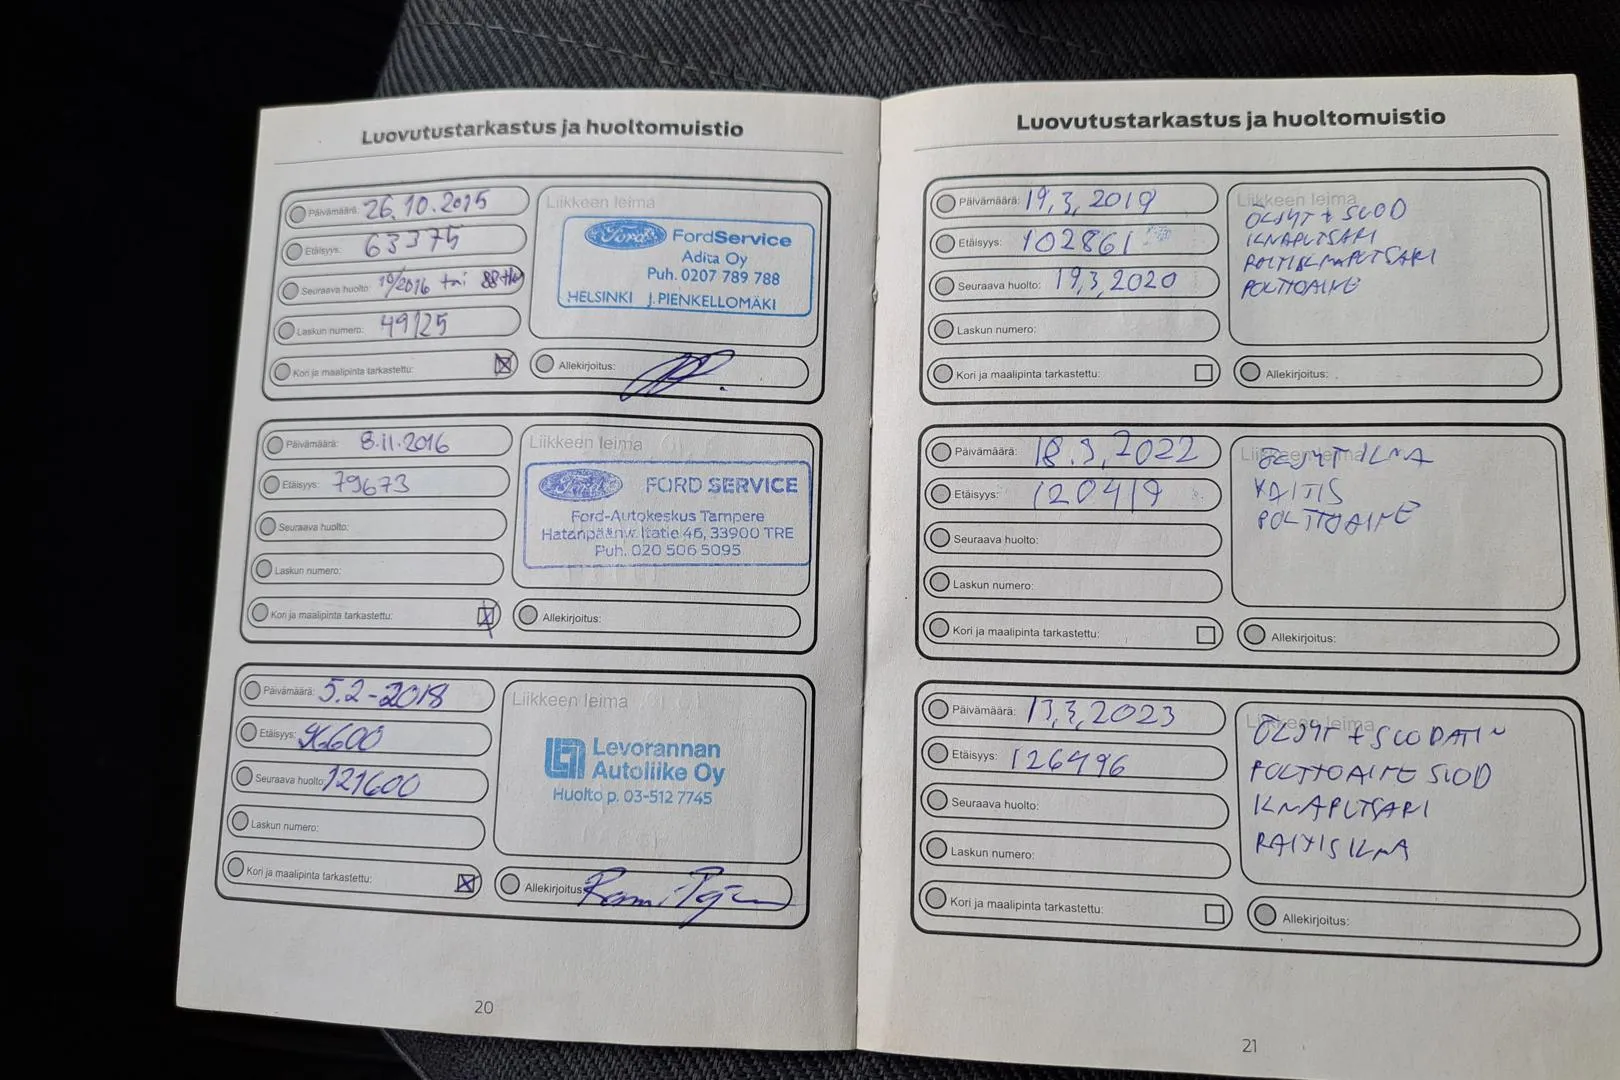 Luovutustarkastus ja huoltomuistio
Päivämäärä: 26.10.2015
Etäisyys: 63375
Seuraava huolto: 10/2016 tai 88tkm
Laskun numero: 49125
Kori ja maalipinta tarkastettu:
Liikkeen leima
Ford FordService
Adita Oy
Puh. 0207 789 788
HELSINKI J.PIENKELLOMÄKI
Allekirjoitus:
Päivämäärä: 8.11.2016
Etäisyys: 79673
Seuraava huolto:
Laskun numero:
Kori ja maalipinta tarkastettu:
Liikkeen leima
Ford FORD SERVICE
Ford-Autokeskus Tampere
Hatanpäänv.ltatie 46, 33900 TRE
Puh. 020 506 5095
Allekirjoitus:
Päivämäärä: 5.2-2018
Etäisyys: 96600
Seuraava huolto: 121600
Laskun numero:
Kori ja maalipinta tarkastettu:
Liikkeen leima
Levorannan
Autoliike Oy
Huolto p. 03-512 7745
Allekirjoitus:
20
Luovutustarkastus ja huoltomuistio
Päivämäärä: 19,3,2019
Etäisyys: 102861
Seuraava huolto: 19,3,2020
Laskun numero:
Kori ja maalipinta tarkastettu:
Liikkeen leima
ÖLJYT + SUOD
ILMAPUTSARI
RAITISILMAPUTSARI
POLTTOAINE
Allekirjoitus:
Päivämäärä: 18.3,2022
Etäisyys: 120419
Seuraava huolto:
Laskun numero:
Kori ja maalipinta tarkastettu:
Liikkeen leima
ÖLJYT ILMA
RAITIS
POLTTOAINE
Allekirjoitus:
Päivämäärä: 13,3,2023
Etäisyys: 126496
Seuraava huolto:
Laskun numero:
Kori ja maalipinta tarkastettu:
Liikkeen leima
ÖLJYT + SUODATIN
POLTTOAINE SUOD
ILMAPUTSARI
RAITIS ILMA
Allekirjoitus:
21